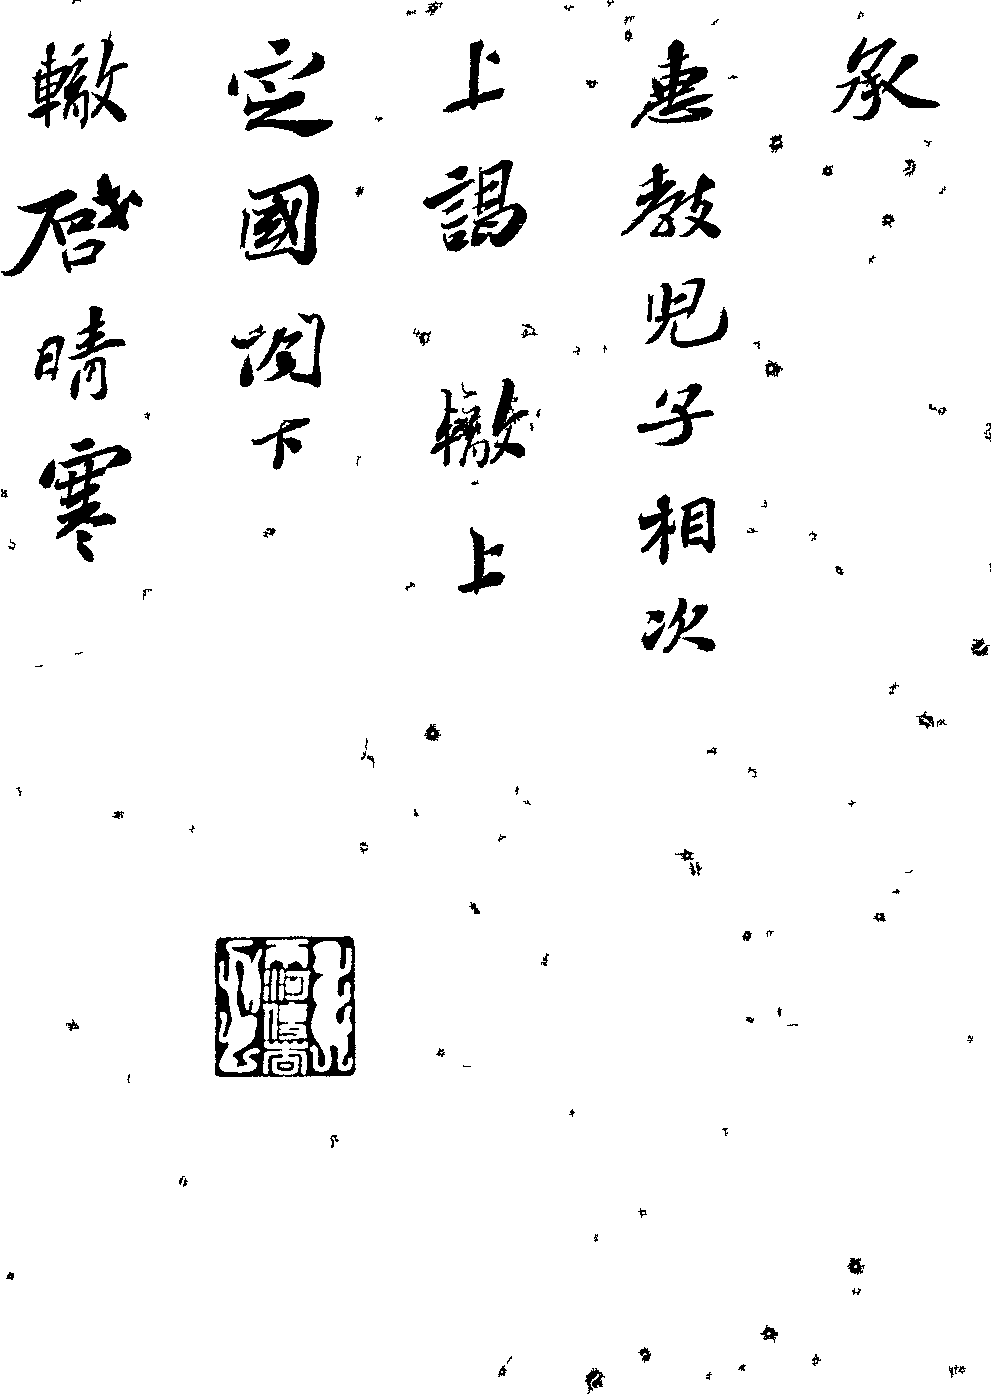 承
惠教兒子相次
上謁 轍上
定國閣下
轍啓晴寒